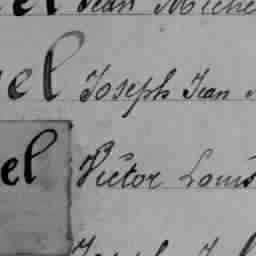 el Jean Michel
el Joseph Jean
el Victor Louis
Joseph